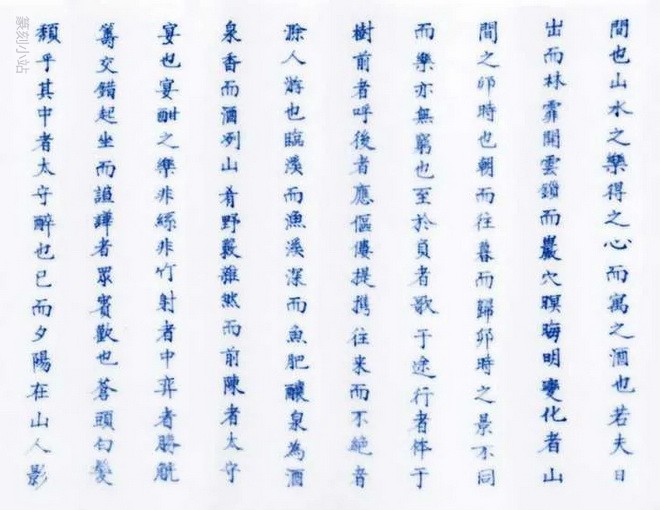 間也山水之樂得之心而寓之酒也若夫日
出而林霏開雲而巖穴暝晦明變化者山
間之卯時也朝而往暮而歸卯時之景不同
而樂亦無窮也至於負者歌于途行者休于
樹前者呼後者應傴僂提携往来而不絕者
滁人游也臨溪而漁溪深而魚肥釀泉為酒
泉香而酒冽山肴野蔌雜然而前陳者太守
宴也宴酣之樂非絲非竹射者中弈者勝觥
籌交錯起坐而諠譁者眾賓歡也蒼頭白髮
頹乎其中者太守醉也已而夕陽在山人影
篆刻小站